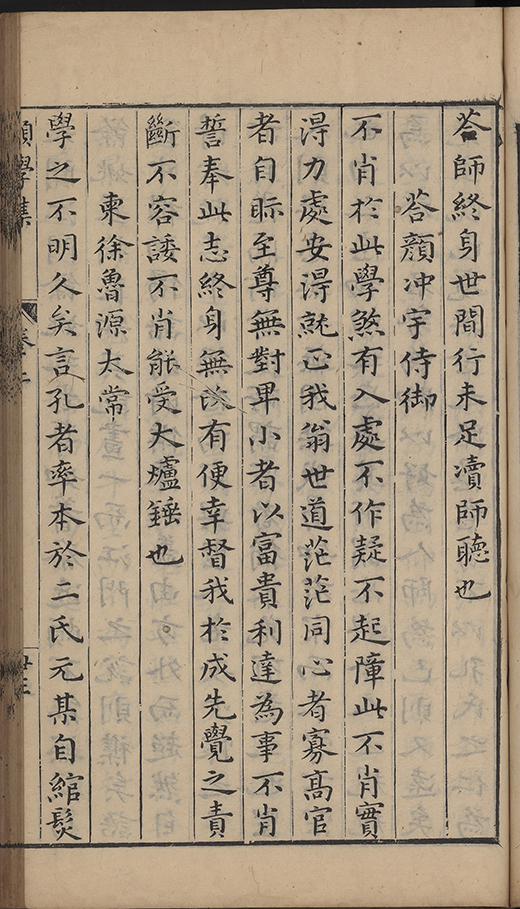 荅師終身世間行未足凟師聽也
荅顏冲宇侍御
不肖於此學煞有入處不作疑不起障此不肖實
得力處安得就正我翁世道茫茫同心者寡高官
者自眎至尊無對卑小者以富貴利達為事不肖
誓奉此志終身無改有便幸督我於成先覺之責
斷不容諉不肖能受大爐錘也
柬徐魯源太常
學之不明久矣言孔者率本於二氏元某自綰髮
願學集
卷之二
廿三